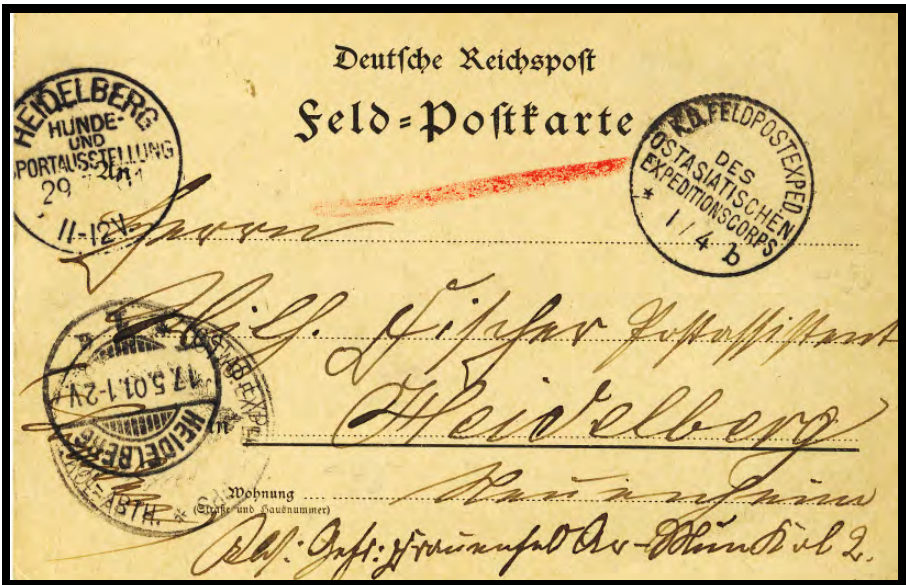 Deutsche Reichspost
Feld=Postkarte
HEIDELBERG
HUNDE-
UND
SPORTAUSSTELLUNG
29
11-12V
K.D. FELDPOSTEXPED.
DES
OSTASIATISCHEN
EXPEDITIONSCORPS
* 1/4 b
An
Herrn
Wilh. Fischer Postassistent
17.5.01.1-2V.
HEIDELBERG
in Heidelberg
Wohnung Neuenheim
(Straße und Hausnummer)
Abs: Gefr: Frauenfeld Ar-Mun Kol 2.